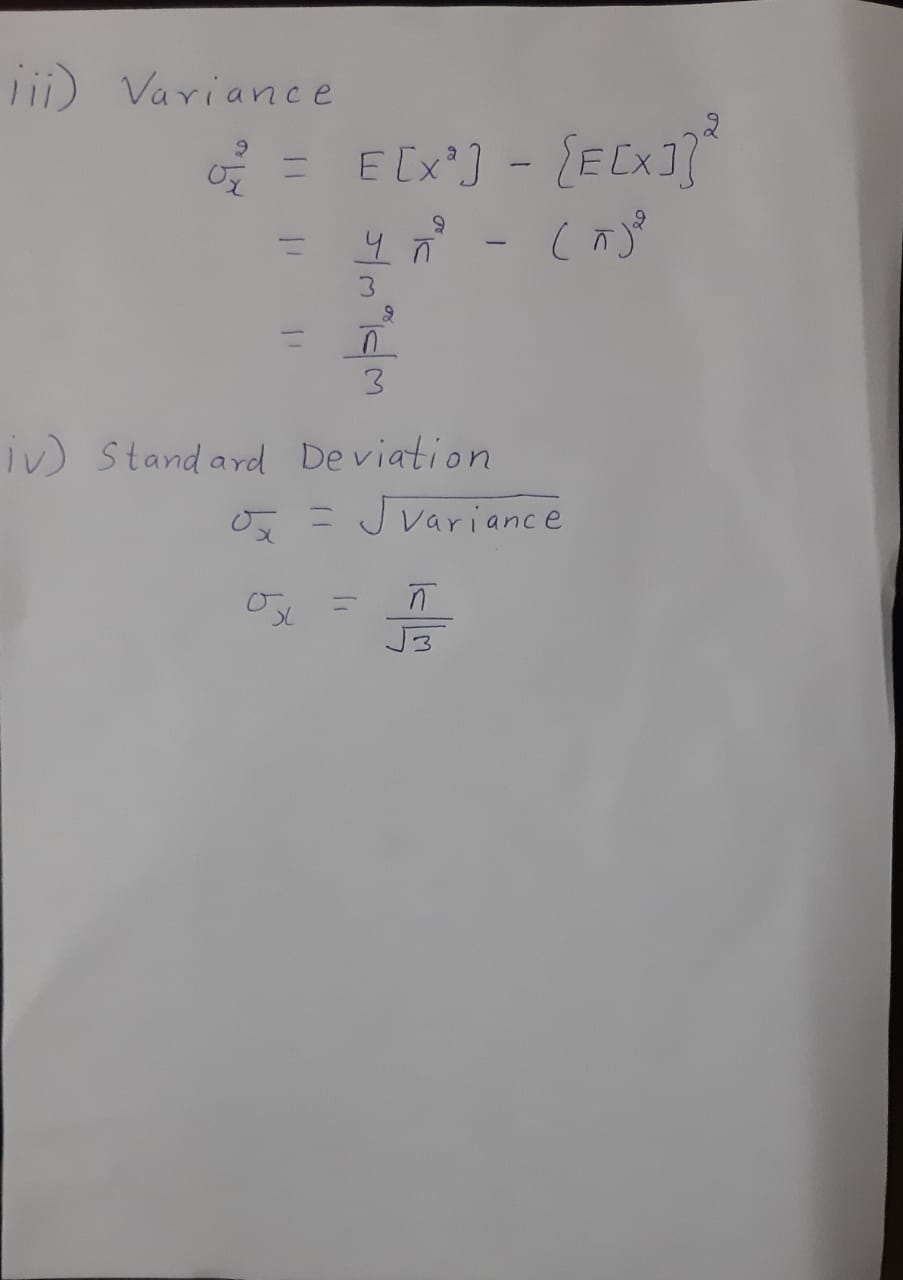 iii) Variance
σx² = E[X²] - {E[X]}²
= 4/3 π² - (π)²
= π²/3
iv) Standard Deviation
σx = √Variance
σx = π/√3